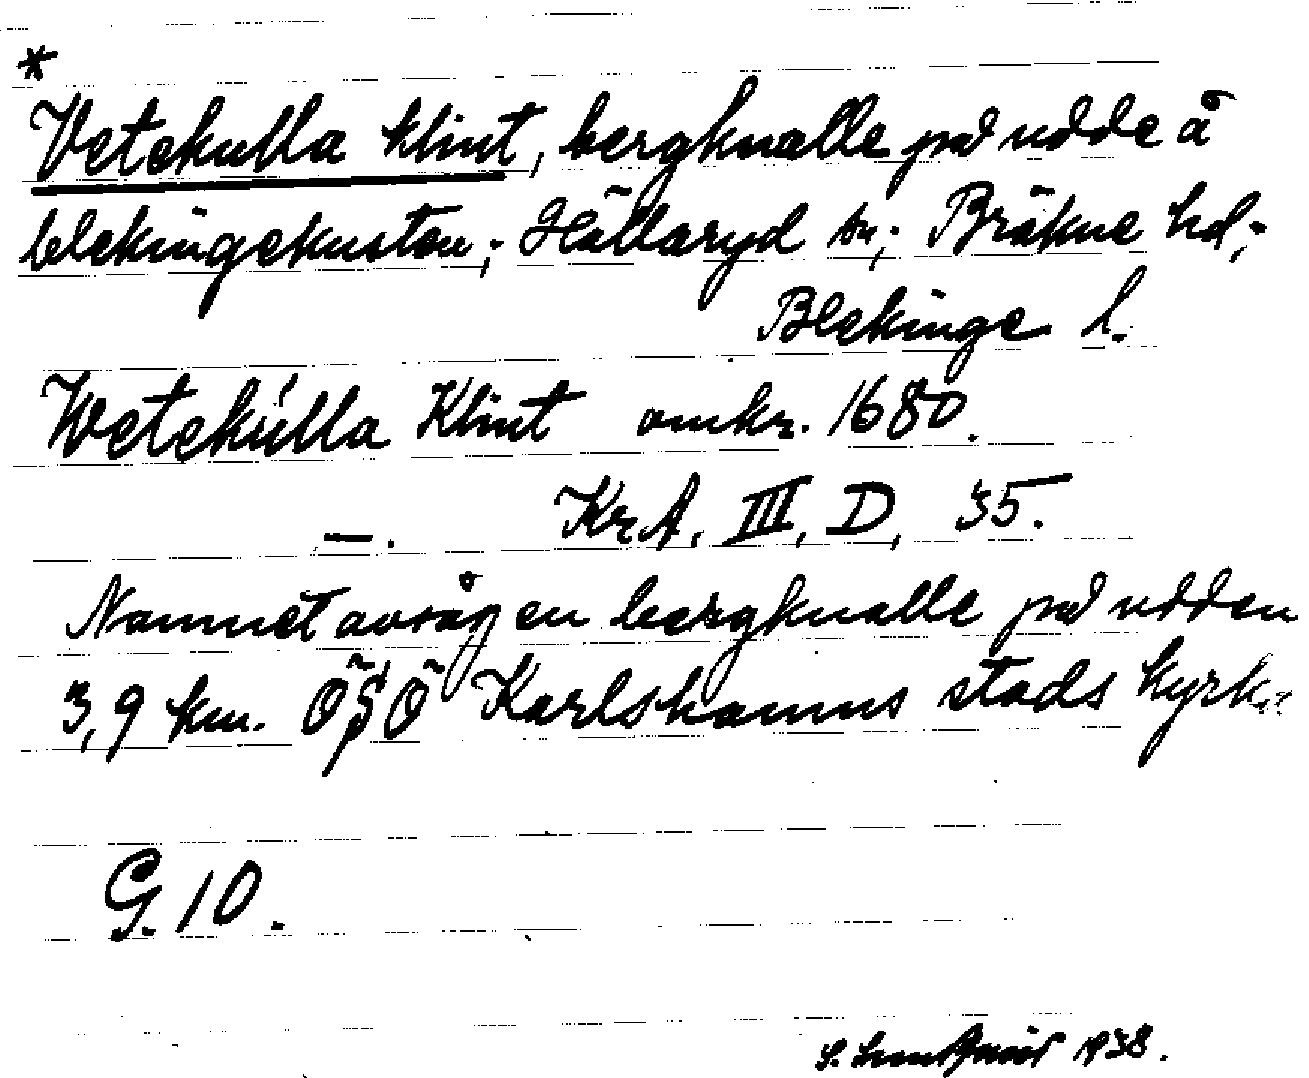 *
Vetekulla klint, bergknalle på udde å
blekingekusten; Hällaryd sn; Bräkne hd;
Blekinge l.
Wetekúlla Klint omkr. 1680.
—. KrA, III, D, 35.
Namnet avsåg en bergknalle på udden
3,9 km. ÖSÖ Karlshamns stads kyrka
G. 10.
1938.